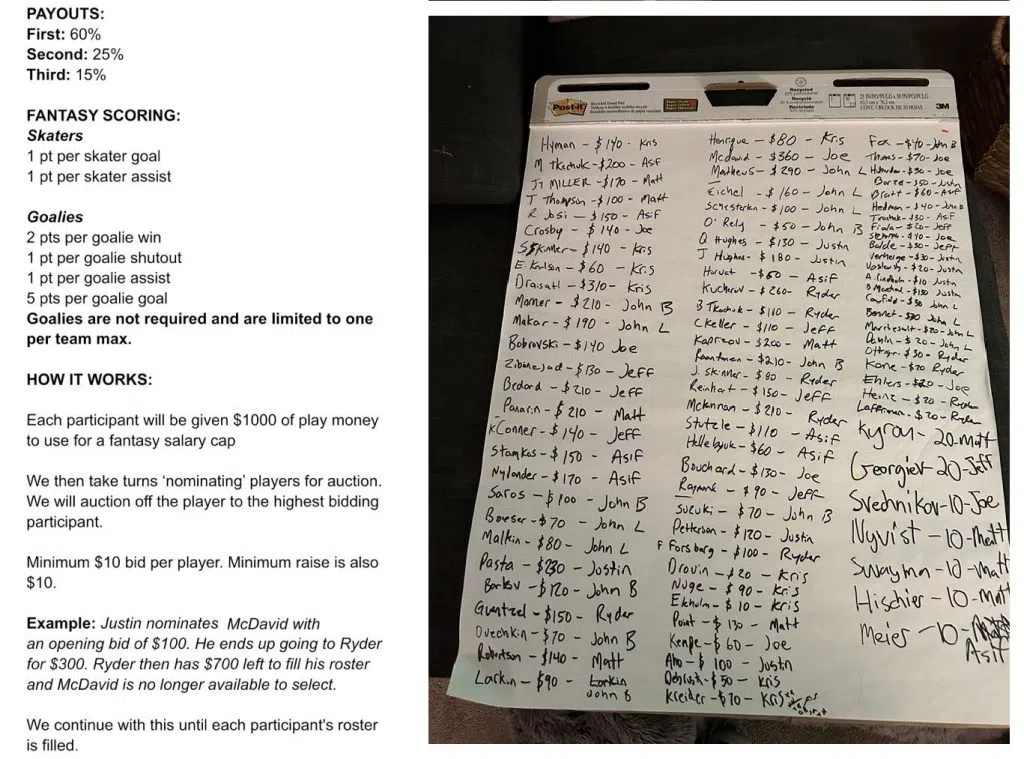 PAYOUTS:
First: 60%
Second: 25%
Third: 15%
FANTASY SCORING:
Skaters
1 pt per skater goal
1 pt per skater assist
Goalies
2 pts per goalie win
1 pt per goalie shutout
1 pt per goalie assist
5 pts per goalie goal
Goalies are not required and are limited to one
per team max.
HOW IT WORKS:
Each participant will be given $1000 of play money
to use for a fantasy salary cap
We then take turns 'nominating' players for auction.
We will auction off the player to the highest bidding
participant.
Minimum $10 bid per player. Minimum raise is also
$10.
Example: Justin nominates McDavid with
an opening bid of $100. He ends up going to Ryder
for $300. Ryder then has $700 left to fill his roster
and McDavid is no longer available to select.
We continue with this until each participant's roster
is filled.
Post-it
Recycled
Recycle
Reciclado
25 IN/PO/PULG x 30 IN/PO/PULG
3M
Hyman - $140 - Kris
M Tkachuk - $200 - Asif
JT MILLER - $170 - Matt
T Thompson - $100 - Matt
R Josi - $150 - Asif
Crosby - $140 - Joe
S Skinner - $140 - Kris
E. Karlson - $60 - Kris
Draisatl - $310 - Kris
Marner - $210 - John B
Makar - $190 - John L
Bobrovski - $140 Joe
Zibanejad - $130 - Jeff
Bedard - $210 - Jeff
Panarin - $210 - Matt
K Conner - $140 - Jeff
Stamkos - $150 - Asif
Nylander - $170 - Asif
Saros - $100 - John B
Boeser - $70 - John L
Malkin - $80 - John L
Pasta - $230 - Justin
Barkov - $120 - John B
Guentzel - $150 - Ryder
Ovechkin - $70 - John B
Robertson - $140 - Matt
Larkin - $90 - Larkin
John B
Henrique - $80 - Kris
Mcdavid - $360 - Joe
Matthews - $290 - John L
Eichel - $160 - John L
Schesterkin - $100 - John L
O'Rely - $50 - John B
Q Hughes - $130 - Justin
J Hughes - $180 - Justin
Horvat - $60 - Asif
Kucherov - $260 - Ryder
B Tkachuk - $110 - Ryder
C Keller - $110 - Jeff
Kaprizov - $200 - Matt
Rantanen - $210 - John B
J. Skinner - $80 - Ryder
Reinhart - $150 - Jeff
Mckinnon - $210 - Ryder
Stutzle - $110 - Asif
Hellebyuk - $60 - Asif
Bouchard - $130 - Joe
Raymond - $90 - Jeff
Suzuki - $70 - John B
Petterson - $120 - Justin
F Forsberg - $100 - Ryder
Drouin - $20 - Kris
Nuge - $90 - Kris
Ekholm - $10 - Kris
Point - $130 - Matt
Kempe - $60 - Joe
Aho - $100 - Justin
Debrusk - $50 - Kris
Kreider - $70 - Kris
Fox - $40 - John B
Thomas - $70 - Joe
- $50 - Joe
- $50 - John
Bratt - $60 - Asif
Hedman - $40 - John B
Trocheck - $30 - Asif
Fiala - $20 - Jeff
- $40 - Joe
Boldy - $50 - Jeff
Verhaege - $30 - Justin
- $20 - Justin
A. Lindholm - $10 Justin
B Marchand - $150 Justin
Caufield - $50 John L
Bennet - $20 John L
Marchesault - $20 - John L
- $20 - John L
- $50 - Ryder
Kane - $20 Ryder
Ehlers - $20 - Joe
Heinz - $20 - Ryder
Lafferiner - $20 - Ryder
Kyrou - 20 - Matt
Georgiev - 20 - Jeff
Svechnikov - 10 - Joe
Nyvist - 10 - Matt
Swayman - 10 - Matt
Hischier - 10 - Matt
Meier - 10 -
Asif